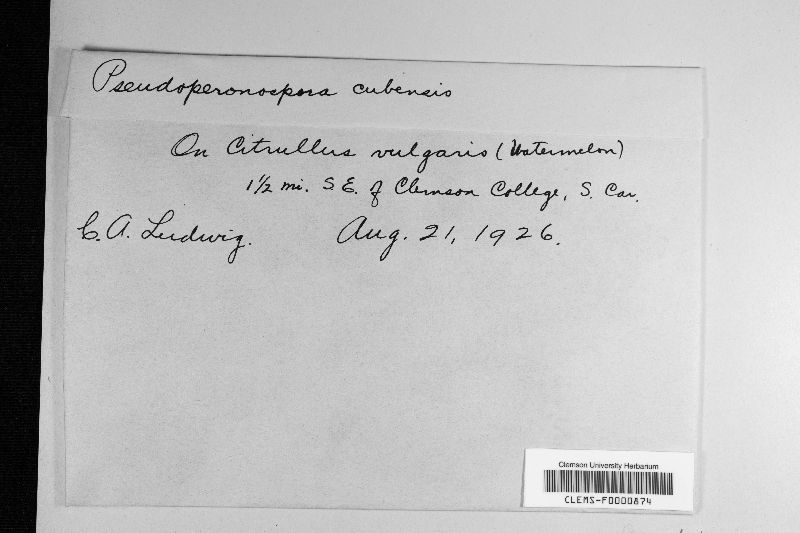 Pseudoperonospora cubensis
On Citrullus vulgaris (Watermelon)
1½ mi. S.E. of Clemson College, S. Car.
C. A. Ludwig. Aug. 21, 1926.
Clemson University Herbarium
CLEMS-F0000874